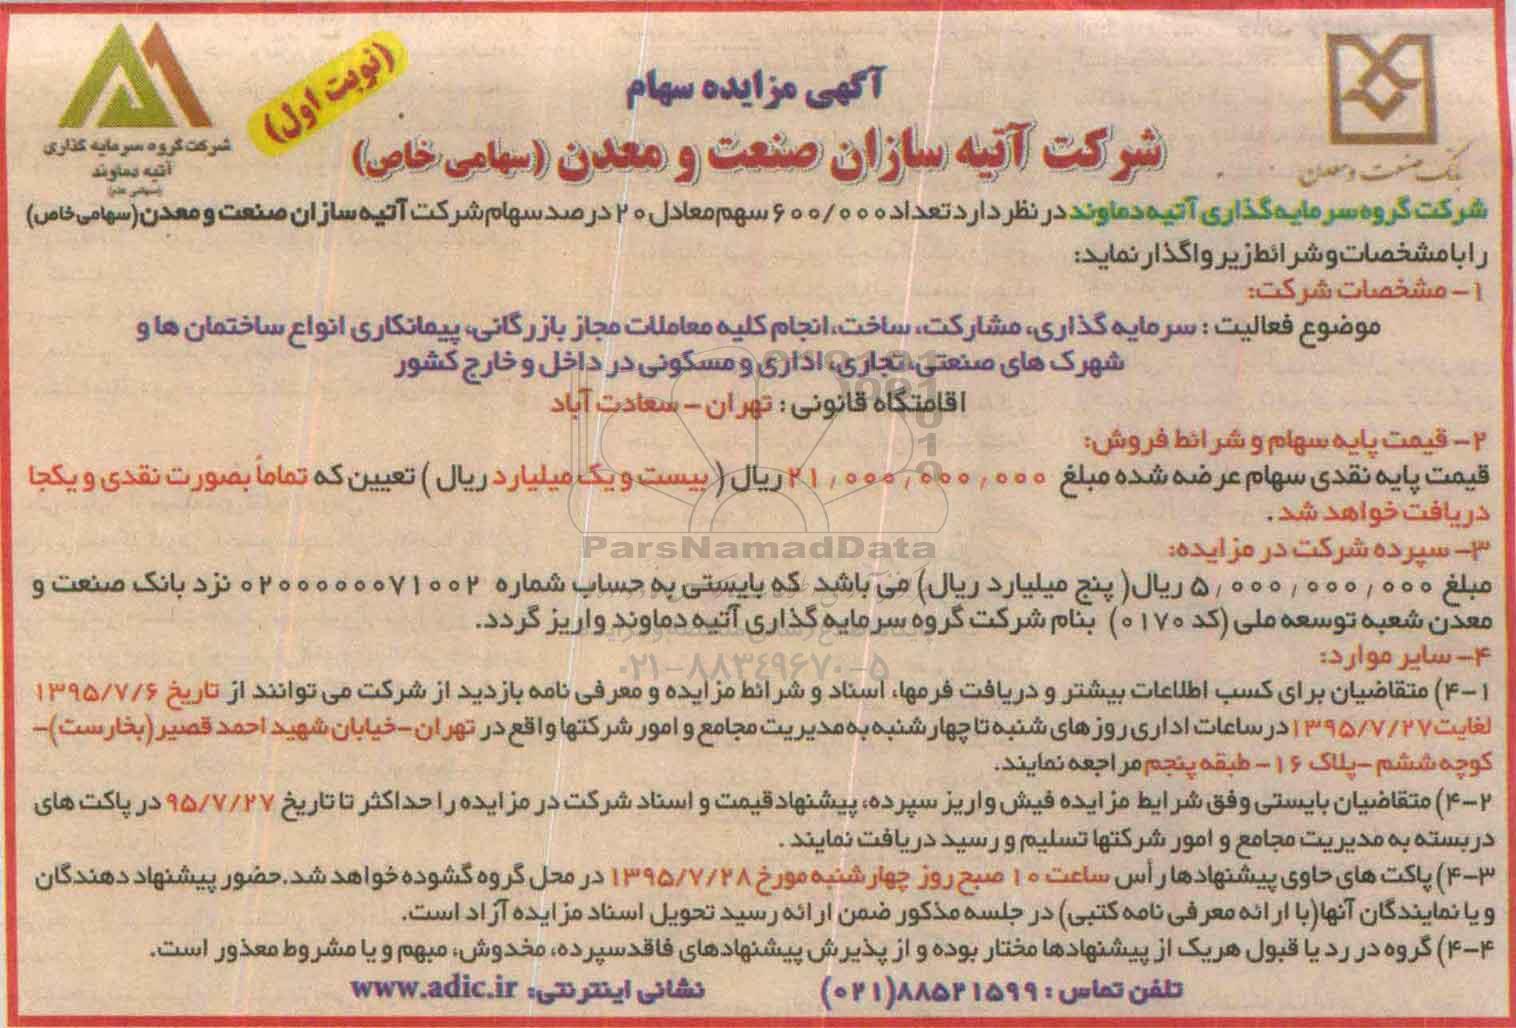 (نوبت اول)
آگهی مزایده سهام
شرکت آتیه سازان صنعت و معدن (سهامی خاص)
شرکت گروه سرمایه گذاری
آتیه دماوند
(سهامی عام)
بانک صنعت و معدن
شرکت گروه سرمایه گذاری آتیه دماوند در نظر دارد تعداد ۶۰۰/۰۰۰ سهم معادل ۲۰ درصد سهام شرکت آتیه سازان صنعت و معدن (سهامی خاص)
را با مشخصات و شرائط زیر واگذار نماید:
۱- مشخصات شرکت:
موضوع فعالیت : سرمایه گذاری، مشارکت، ساخت، انجام کلیه معاملات مجاز بازرگانی، پیمانکاری انواع ساختمان ها و
شهرک های صنعتی، تجاری، اداری و مسکونی در داخل و خارج کشور
اقامتگاه قانونی : تهران - سعادت آباد
۲- قیمت پایه سهام و شرائط فروش:
قیمت پایه نقدی سهام عرضه شده مبلغ ۲۱,۰۰۰,۰۰۰,۰۰۰ ریال ( بیست و یک میلیارد ریال ) تعیین که تماماً بصورت نقدی و یکجا
دریافت خواهد شد .
۳- سپرده شرکت در مزایده:
مبلغ ۵,۰۰۰,۰۰۰,۰۰۰ ریال( پنج میلیارد ریال) می باشد که بایستی به حساب شماره ۰۲۰۰۰۰۰۰۷۱۰۰۲ نزد بانک صنعت و
معدن شعبه توسعه ملی (کد ۰۱۷۰) بنام شرکت گروه سرمایه گذاری آتیه دماوند واریز گردد.
۴- سایر موارد:
۴-۱) متقاضیان برای کسب اطلاعات بیشتر و دریافت فرمها، اسناد و شرائط مزایده و معرفی نامه بازدید از شرکت می توانند از تاریخ ۱۳۹۵/۷/۶
لغایت ۱۳۹۵/۷/۲۷ در ساعات اداری روزهای شنبه تا چهارشنبه به مدیریت مجامع و امور شرکتها واقع در تهران-خیابان شهید احمد قصیر (بخارست)-
کوچه ششم -پلاک ۱۶- طبقه پنجم مراجعه نمایند.
۴-۲) متقاضیان بایستی وفق شرایط مزایده فیش واریز سپرده، پیشنهاد قیمت و اسناد شرکت در مزایده را حداکثر تا تاریخ ۹۵/۷/۲۷ در پاکت های
دربسته به مدیریت مجامع و امور شرکتها تسلیم و رسید دریافت نمایند .
۴-۳) پاکت های حاوی پیشنهادها رأس ساعت ۱۰ صبح روز چهارشنبه مورخ ۱۳۹۵/۷/۲۸ در محل گروه گشوده خواهد شد. حضور پیشنهاد دهندگان
و یا نمایندگان آنها (با ارائه معرفی نامه کتبی) در جلسه مذکور ضمن ارائه رسید تحویل اسناد مزایده آزاد است.
۴-۴) گروه در رد یا قبول هریک از پیشنهادها مختار بوده و از پذیرش پیشنهادهای فاقد سپرده، مخدوش، مبهم و یا مشروط معذور است.
تلفن تماس : ۸۸۵۲۱۵۹۹(۰۲۱)
نشانی اینترنتی: www.adic.ir
ParsNamadData
۰۲۱-۸۸۳۴۹۶۷۰-۵